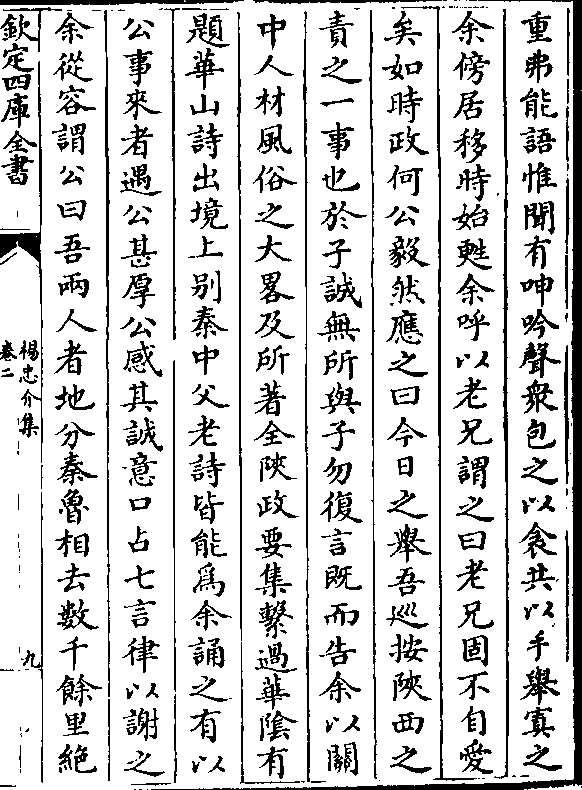 重弗能語惟聞有呻吟聲衆包之以衾共以手舉寘之
余傍居移時始甦余呼以老兄謂之曰老兄固不自愛
矣如時政何公毅然應之曰今日之舉吾巡按陜西之
責之一事也於子誠無所與子勿復言既而告余以關
中人材風俗之大畧及所著全陜政要集繫過華隂有
題華山詩出境上别秦中父老詩皆能爲余誦之有以
公事來者遇公甚厚公感其誠意口占七言律以謝之
余從容謂公曰吾兩人者地分秦魯相去數千餘里絶
欽定四庫全書
楊忠介集
卷二
九